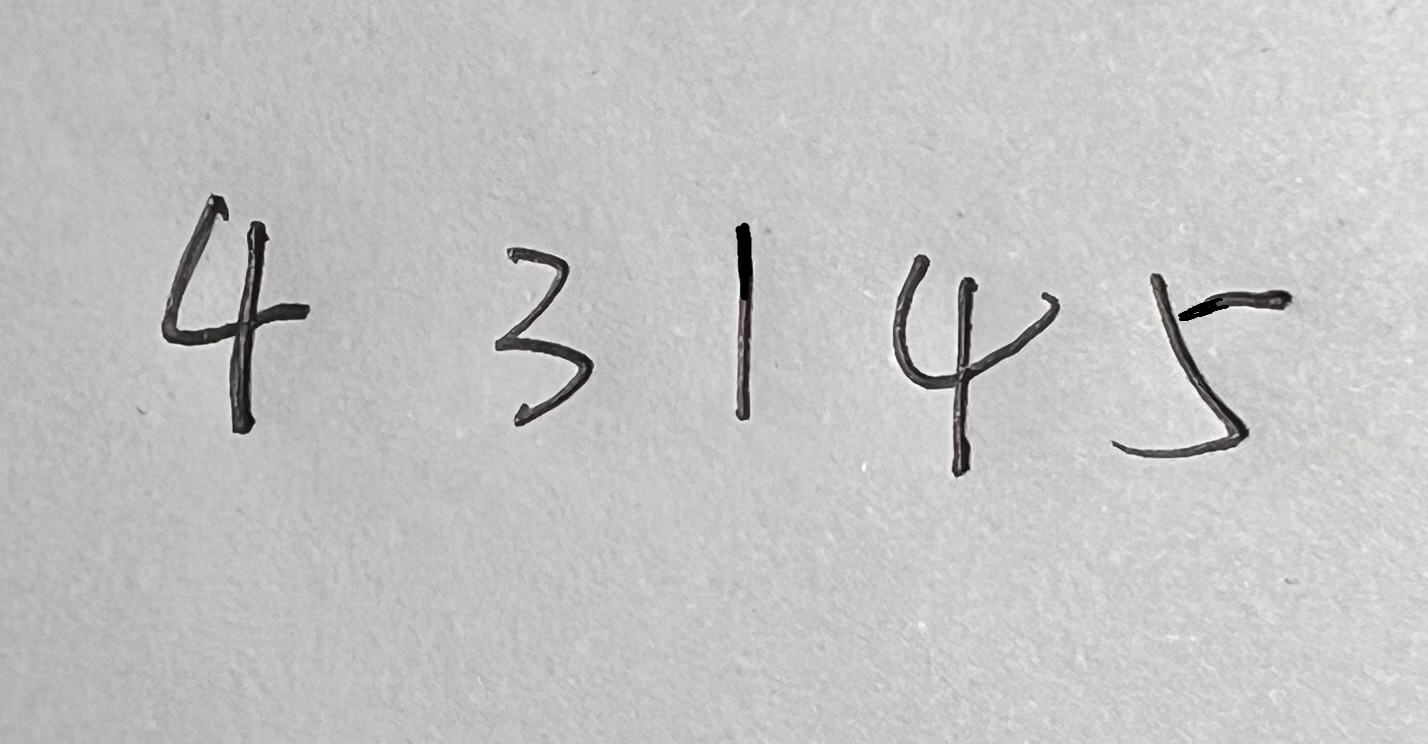 4 3 1 4 5